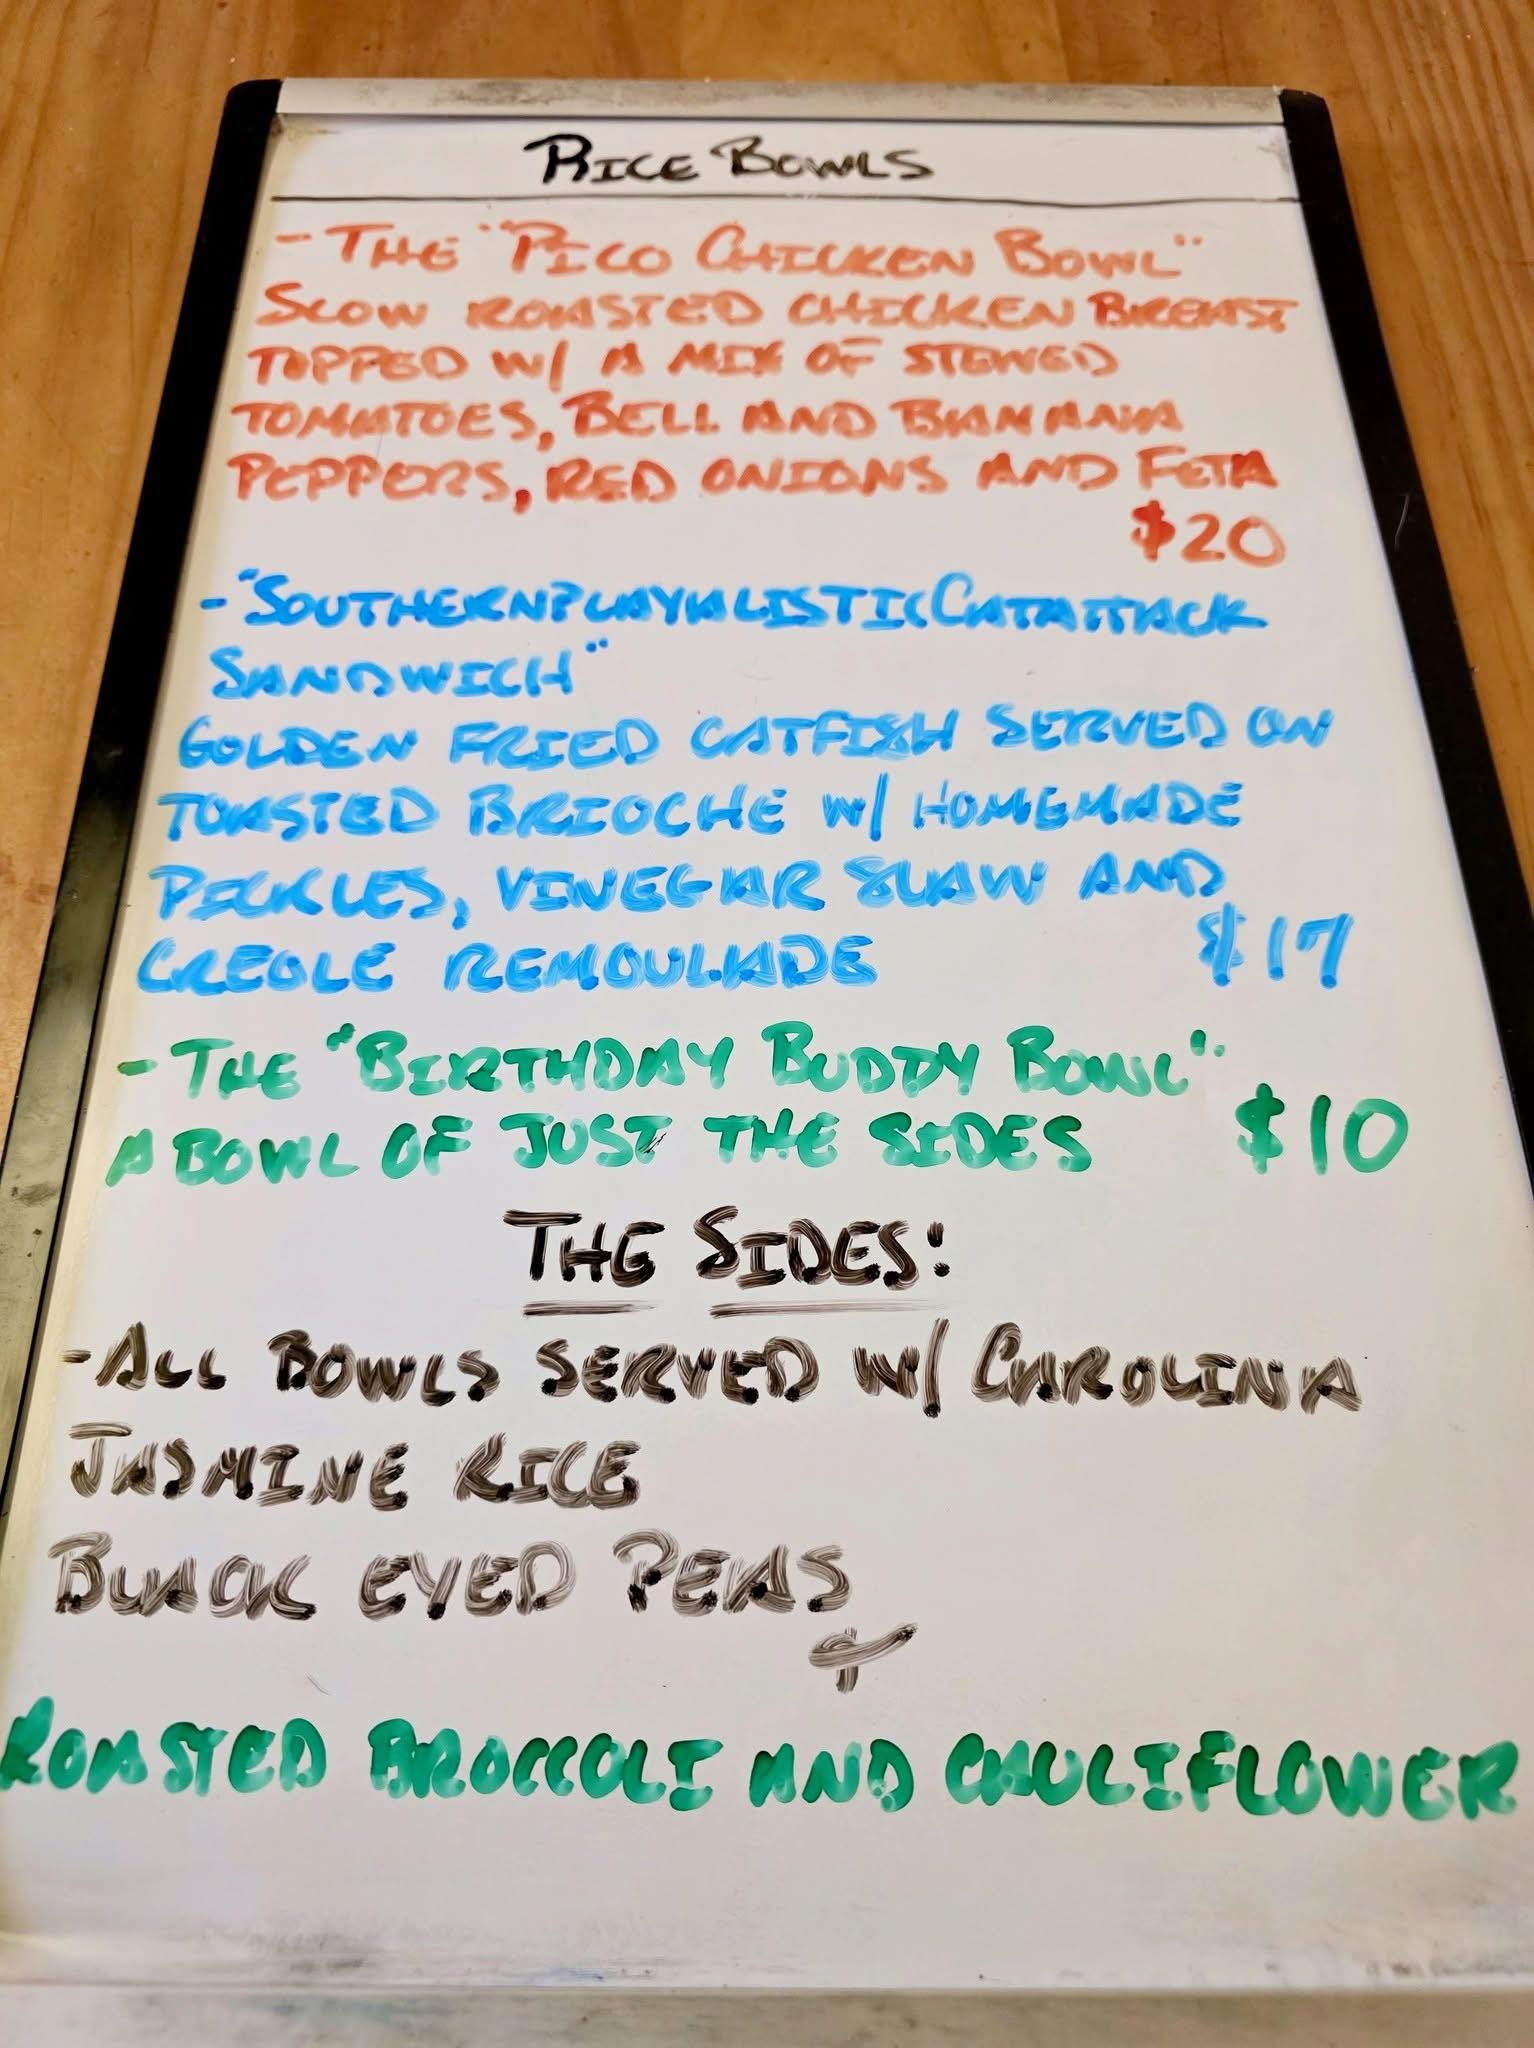 RICE BOWLS
- THE "PICO CHICKEN BOWL"
SLOW ROASTED CHICKEN BREAST
TOPPED W/ A MIX OF STEWED
TOMATOES, BELL AND BANANA
PEPPERS, RED ONIONS AND FETA
$20
- "SOUTHERNPLAYALISTICCATATTACK
SANDWICH"
GOLDEN FRIED CATFISH SERVED ON
TOASTED BRIOCHE W/ HOMEMADE
PICKLES, VINEGAR SLAW AND
CREOLE REMOULADE $17
- THE "BIRTHDAY BUDDY BOWL"
A BOWL OF JUST THE SIDES $10
THE SIDES:
- ALL BOWLS SERVED W/ CAROLINA
JASMINE RICE
BLACK EYED PEAS
+
ROASTED BROCCOLI AND CAULIFLOWER